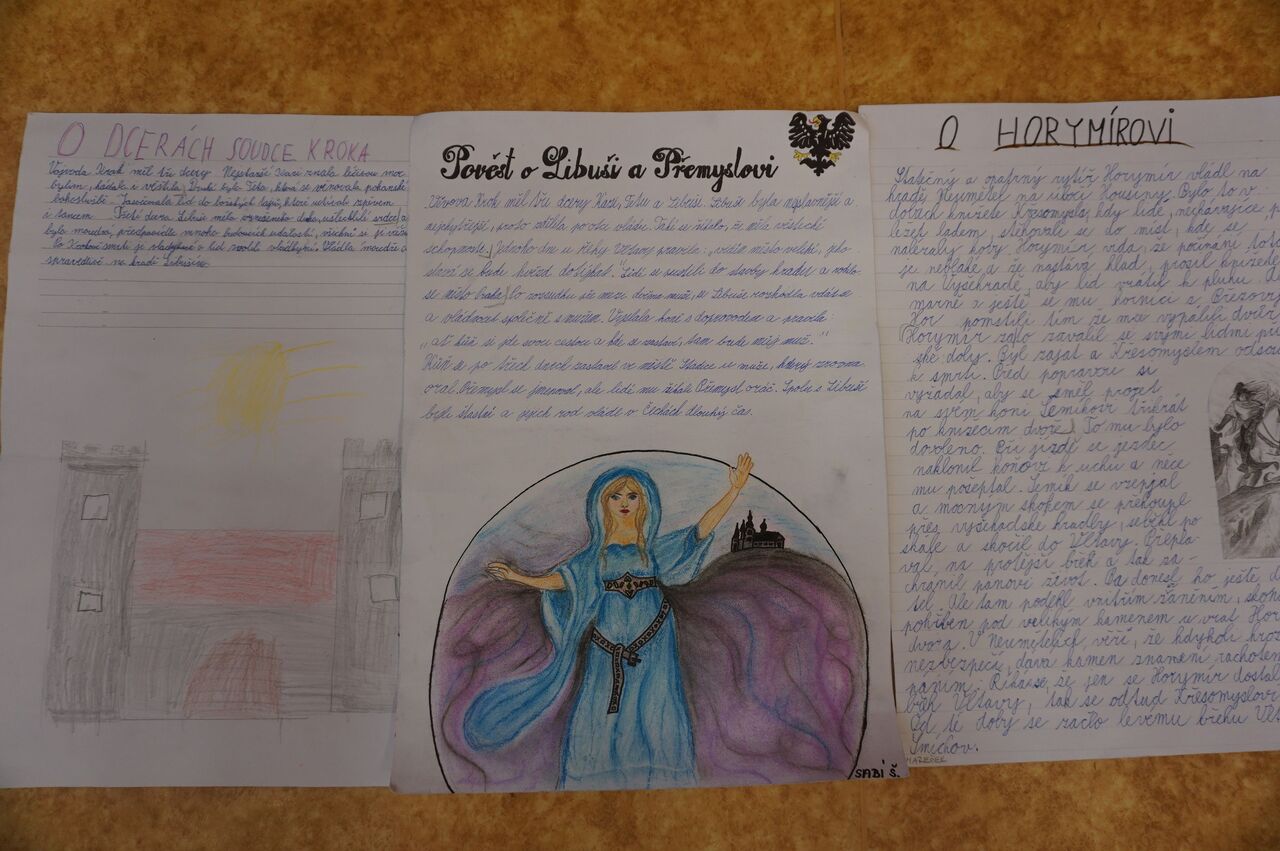 O DCERÁCH SOUDCE KROKA
Vojvoda Krok měl tři dcery. Nejstarší Kazi znala léčivou moc
bylin, hádala i věštila. Druhá byla Teta, která se věnovala pohanské
lid do božských hájů, které uctívali zpěvem
a tancem. Třetí dcera Libuše měla ušlechtilé srdce a
byla moudrá, předpověděla mnoho budoucích událostí, všichni se jí
Po Krokově smrti je a lid zvolil vládkyní. Vládla moudře a
spravedlivě na hradě Libušíně.
Pověst o Libuši a Přemyslovi
Vévoda Krok měl tři dcery Kazi, Tetu a Libuši. Libuše byla nejslavnější a
nejchytřejší, proto zdědila po otci vládu. Také se říkalo, že měla věštecké
schopnosti. Jednoho dne u řeky Vltavy pravila: „vidím město veliké, jeho
sláva se bude hvězd dotýkat." Lidé se pustili do stavby hradu a
se město Praha. Po rozsudku se mezi dvěma muži, se Libuše rozhodla vdát se
a vládnout společně s mužem. Vyslala koně s doprovodem a pravila:
„ať kůň se jde svou cestou a kde se zastaví, tam bude můj muž."
Kůň se po třech dnech zastavil ve městě Stadice se muže, který zrovna
oral. Přemysl se jmenoval, ale lidé mu říkali Přemysl oráč. Spolu s Libuší
byli šťastní a jejich rod vládl v Čechách dlouhý čas.
SABI Š.
O HORYMÍROVI
Statečný a opatrný rytíř Horymír vládl na
hradě Neumětel na úbočí Housiny. Bylo to v
dobách knížete Křesomysla, kdy lidé, nechávajíce
ležet ladem, stěhovali se do míst, kde se
nalézaly kovy. Horymír vida, že počínání toto
je neblahé a že nastává hlad, prosil knížete
na Vyšehradě, aby lid vrátil k pluhu.
marně a ještě se mu horníci z Březových
Hor pomstili tím že mu vypálili dvůr
Horymír zato zavalil se svými lidmi
ské doly. Byl zajat a Křesomyslem
k smrti. Před popravou si
vyžádal, aby se směl projet
na svém koni Šemíkovi třikrát
po knížecím dvoře. To mu bylo
dovoleno. Při jízdě se jezdec
naklonil koňovi k uchu a něco
mu pošeptal. Šemík se vzepjal
a mocným skokem se přehoupl
přes vyšehradské hradby, seběhl po
skále a skočil do Vltavy. Přepla-
val na protější břeh a tak za-
chránil pánovi život. Ba donesl ho ještě
tel. Ale tam podlehl vnitřním zraněním,
pohřben pod velikým kamenem u vrat
dvora. V Neumětelích věří, že kdykoli
nebezpečí, dává kamen znamení
Říká se, že jen se Horymír dostal
břeh Vltavy, tak se odtud Křesomyslovi
Od té doby se začlo levému břehu
Smíchov.